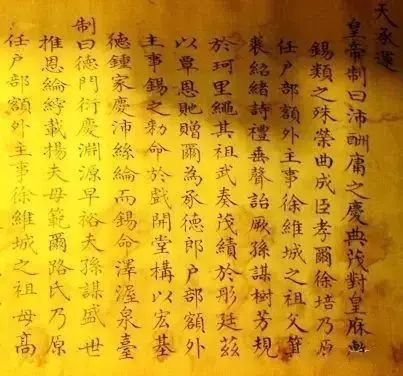 天承運
皇帝制曰沛酬庸之慶典茂對皇庥
錫類之殊榮曲成臣孝爾徐培乃原
任户部額外主事徐維城之祖父箕
裘紹緒詩禮垂聲詒厥孫謀樹芳規
於珂里繩其祖武奏茂績於彤廷兹
以覃恩貤贈爾為承德郎户部額外
主事錫之勅命於戲開堂構以宏基
德鍾家慶沛絲綸而錫命澤渥泉臺
制曰德門衍慶淵源早裕夫孫謀盛世
推恩綸綍載揚夫母範爾路氏乃原
任户部額外主事徐維城之祖母高